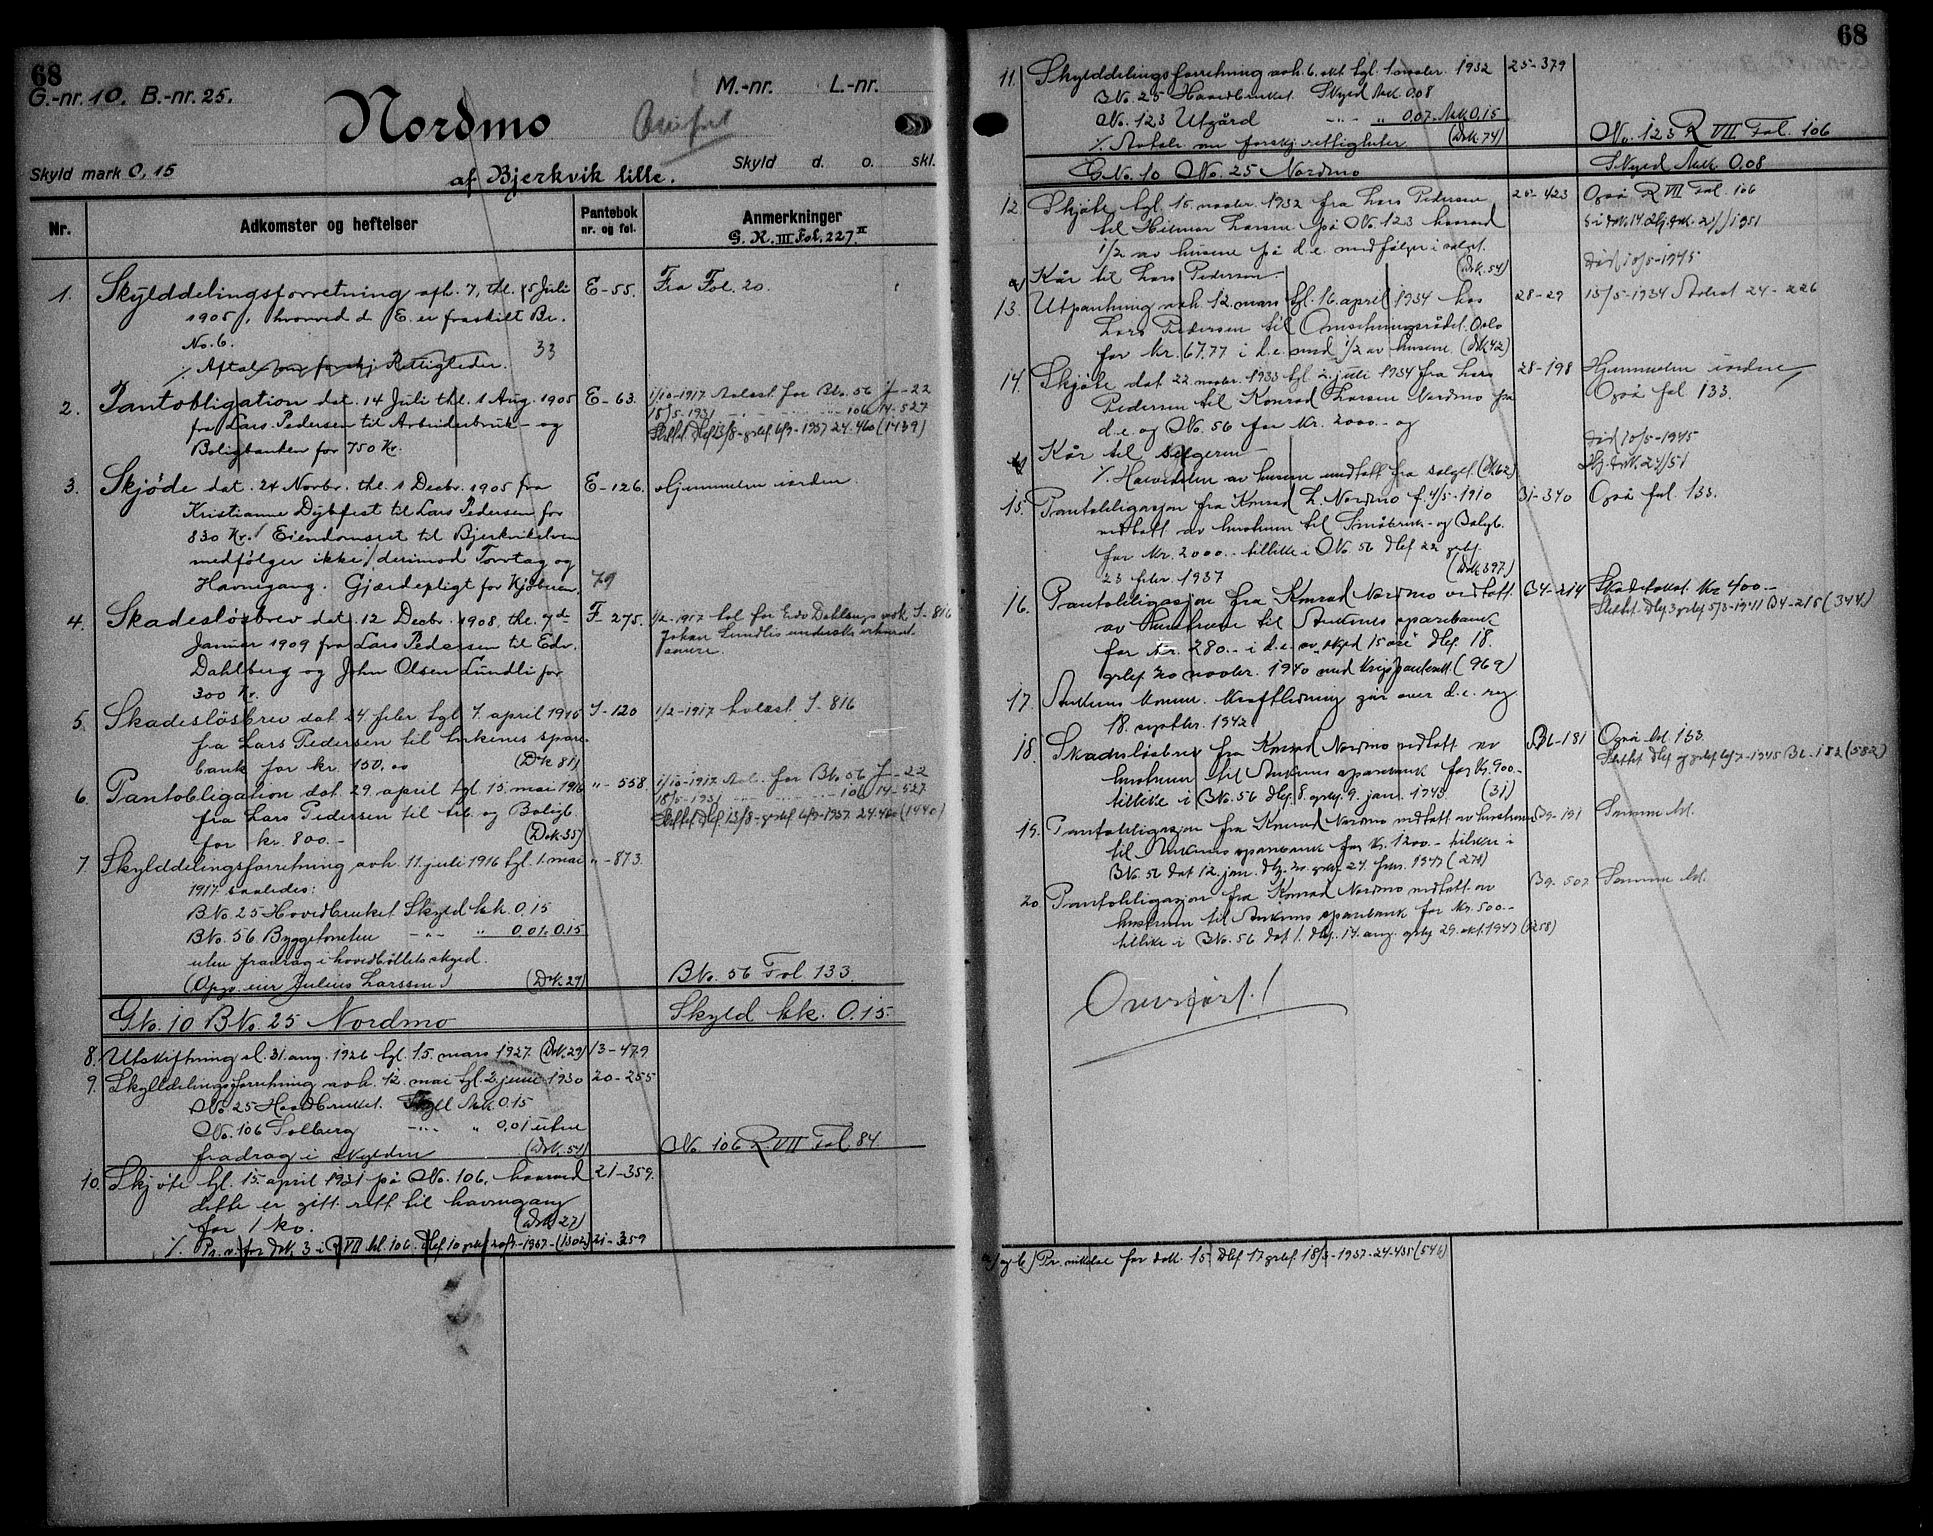 68
G.-nr. 10. B.-nr. 25. M.-nr. L.-nr.
Nordmo
Skyld mark 0,15 Skyld d. o. skl.
af Bjerkvik lille.
Nr. Adkomster og heftelser Pantebok nr. og fol. Anmerkninger
G. K. III Fol. 227 II
1. Skylddelingsforretning afh. 7, thl. 15 Juli E-55. Fra Fol. 20.
1905, hvorved d. E. er fraskilt Br.
No. 6.
33
%. Aftale om forskj. Rettigheder.
2. Pantobligation dat. 14 Juli thl. 1 Aug. 1905 E-63. 1/10-1917 Avlæst for Bno. 56 J-22
fra Lars Pedersen til Arbeiderbruk- og 15/5-1931 106 14-527
Boligbanken for 750 Kr. Slettet Dbf 13/8- grbf 6/9-1937 24-460 (1439)
3. Skjøde dat. 24 Novbr. thl. 1 Decbr. 1905 fra E-126. Hjemmelen iorden
Kristianne Dybfest til Lars Pedersen for
830 Kr. Eiendomsret til Bjerkvikelven
medfølger ikke, derimod Torvtag og
Havnegang. Gjærdepligt for Kjøberen. 79
4. Skadesløsbrev dat. 12 Decbr. 1908, thl. 7de F-275. 1/2-1917 kol for Edv Dahlbergs vedk. I-816
Januar 1909 fra Lars Pedersen til Edv. Johan Lundlis underskr. erkjendt
Dahlberg og John Olsen Lundli for
300 Kr.
5. Skadesløsbrev dat. 24. febr. tgl. 7. april 1915 I-120 1/2-1917 Avlæst I-816
fra Lars Pedersen til Ankenes spare-
bank for kr. 150,00 (Dok 81)
6. Pantobligation dat. 29. april tgl. 15. mai 1916 "-558. 1/10-1917 Avl. for Bno. 56 J-22
fra Lars Pedersen til Arb. og Boligb. 18/5-1931 106 14-527
for kr. 800.- (Dok. 35) Slettet Dbf 13/8- grbf 6/9-1937 24-460 (1440)
7. Skylddelingsforretning avh. 11. juli 1916 tgl. 1. mai "-873.
1917 saaledes:
BNo. 25 Hovedbruket Skyld Mk. 0.15
BNo. 56 Byggetomten -"- " 0.01. 0.15
uten fradrag i hovedbøllets skyld.
(Opg. eier Julius Larssen) (Dok. 29) BNo. 56 Fol. 133
GNo. 10 BNo. 25 Nordmo Skyld Mk. 0.15.
8. Utskiftning sl. 31. aug. 1926 tgl. 15. mars 1927. (Dok. 29) 13-479
9. Skylddelingsforretning avh. 12. mai tgl. 2 juni 1930 20-255
BNo. 25 Hovedbruket. Skyld Mk. 0.15
BNo. 106 Solberg -"- " 0,01 uten
fradrag i skylden (Dok. 51) BNo. 106 R. VII Fol. 84.
10. Skjøte tgl. 15. april 1931 på BNo. 106, hvorved 21-359.
dette er gitt rett til havnegang
for 1 ko. (Dok. 27)
%. Pr. v. for dok. 3 i R VII bl. 106. Dbf 10 grbf 20/7-1937-(1302) 21-359
68
11. Skylddelingsforretning avh. 6. okt. tgl. 1. novbr. 1932 25-379
BNo. 25 Hovedbruket. Skyld Mk. 0.08
BNo. 123 Utgård -"- " 0.07. Mk. 0.15
%. Avtale om forskj. rettigheter (Dok. 74) BNo. 123 R VII Fol. 106
GNo. 10 BNo. 25 Nordmo Skyld Mk. 0.08
12. Skjøte tgl. 15. novbr. 1932 fra Lars Pedersen 25-423 Også R VII Fol. 106
til Hilmar Larsen på BNo. 123 hvorved
1/2 av husene på d.e. medfølger i salget.
a) Kår til Lars Pedersen. (Dok. 54) død 10/5-1945
13. Utpantning avh. 12. mars tgl. 16. april 1934 hos 28-29 15/5-1934 Avlest 24-226
Lars Pedersen til Omsetningsrådet. Oslo
for kr. 67.77 i d.e. med 1/2 av husene. (Dok. 42)
14. Skjøte dat. 22. novbr. 1933 tgl. 2. juli 1934 fra Lars 28-198 Hjemmelen iorden
Pedersen til Konrad Larsen Nordmo på Også fol 133.
d.e. og BNo. 56 for kr. 2000.- og
b) Kår til selgeren død 10/5-1945
%. Halvdelen av husene undtatt fra salget. (Dok 62)
15. Pantobligasjon fra Konrad L. Nordmo f. 4/5-1910 31-340 Også fol. 133.
vedtatt av hustruen til Småbruk- og Boligb.
for kr. 2000.- tillike i BNo. 56 dbf 22 grbf.
23 febr. 1937 (Dok. 397)
16. Pantobligasjon fra Konrad Nordmo vedtatt B4-214
av hustruen til Ankenes sparebank Slettet dbf 3 grbf 5/3-1941 B4-215 (344)
for kr. 280.- i d.e. av "skyld 15 øre" dbf. 18.
grbf. 20 novbr. 1940 med krigspanterett (969)
17. Ankenes komm. Kraftledning går over d.e. reg.
18. septbr. 1942
18. Skadesløsbrev fra Konrad Nordmo vedtatt av B6-181 Også bl. 133.
hustruen til Ankenes sparebank for kr. 900.- Slettet dbf og grbf 6/7-1945 B6-182 (582)
tillike i BNo. 56 dbf. 8. grbf. 9. jan. 1943 (31)
19. Pantobligasjon fra Konrad Nordmo vedtatt av hustruen B9-191 Samme bl.
til Ankenes sparebank for kr. 1200.- tillike i
BNo. 56 dat 12. jan. dbf. 20. grbf. 27. febr. 1947 (271)
20. Pantobligasjon fra Konrad Nordmo vedtatt av B9-507 Samme bl.
hustruen til Ankenes sparebank for kr. 500.-
tillike i BNo. 56 dat 1. dbf. 14. aug. grbf 29. okt. 1947 (1258)
Overført!
a) og b) Pr. vikelse for dok. 15. Dbf 17 grbf 18/3-1937-24-435 (546)